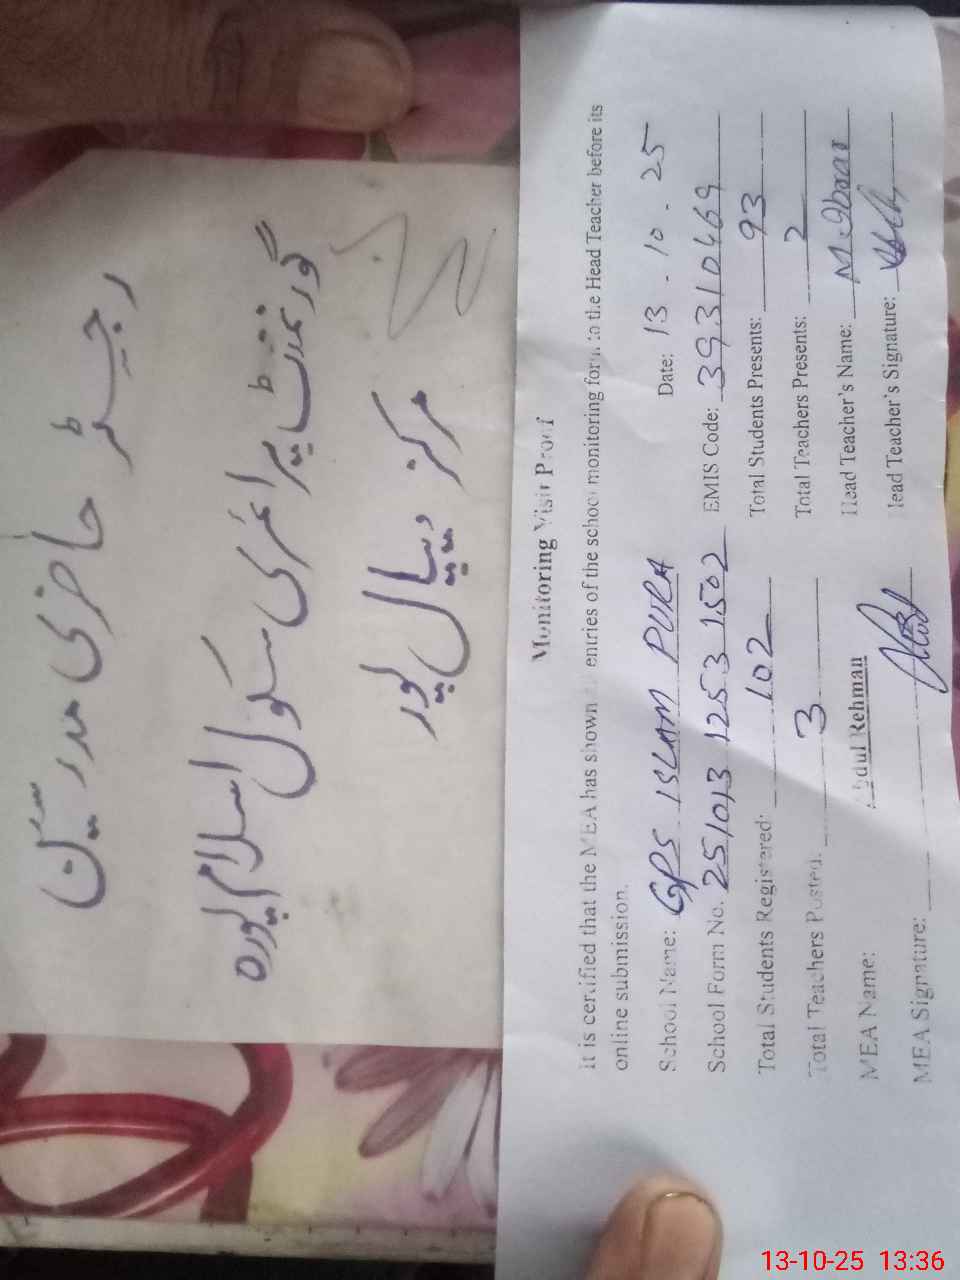 رجسٹر حاضری مدرسین
گورنمنٹ پرائمری سکول اسلام پورہ
مرکز دیپال پور
Monitoring Visit Proof
It is certified that the MEA has shown entries of the school monitoring form to the Head Teacher before its
online submission.
School Name: GPS ISLAM PURA Date: 13 - 10 - 25
School Form No. 251013 1253 1502 EMIS Code: 39310469
Total Students Registered: 102 Total Students Presents: 93
Total Teachers Posted: 3 Total Teachers Presents: 2
MEA Name: Abdul Rehman Head Teacher's Name: M.
MEA Signature: Head Teacher's Signature:
13-10-25 13:36